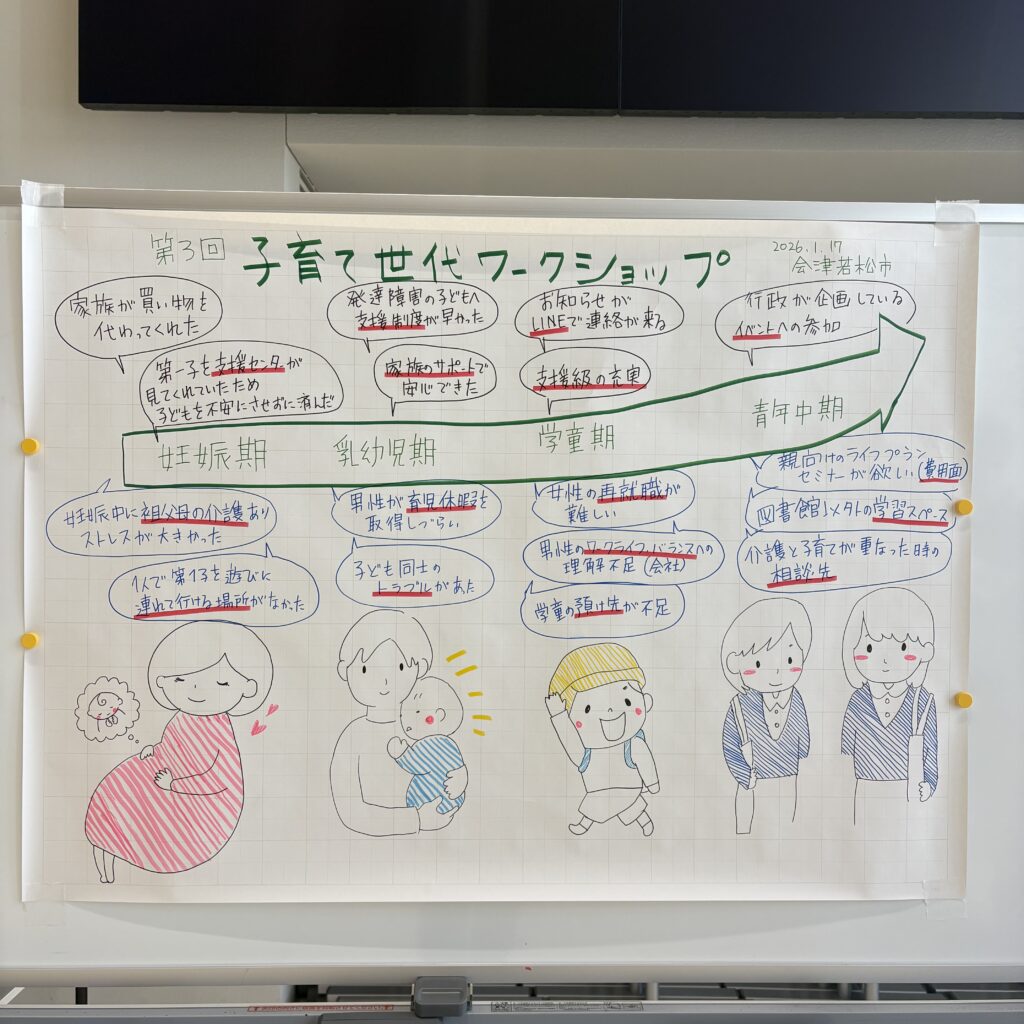 第3回 子育て世代ワークショップ
2026.1.17
会津若松市
家族が買い物を
代わってくれた
第一子を支援センターが
見てくれていたため
子どもを不安にさせずに済んだ
発達障害の子どもへ
支援制度が早やかった
家族のサポートで
安心できた
お知らせが
LINEで連絡が来る
支援級の充実
行政が企画している
イベントへの参加
妊娠期
乳幼児期
学童期
青年中期
妊娠中に祖父母の介護あり
ストレスが大きかった
1人で第1子を遊びに
連れて行ける場所がなかった
男性が育児休暇を
取得しづらい
子ども同士の
トラブルがあった
女性の再就職が
難しい
男性のワークライフバランスへの
理解不足(会社)
学童の預け先が不足
親向けのライフプラン
セミナーが欲しい(費用面)
図書館以外の学習スペース
介護と子育てが重なった時の
相談先